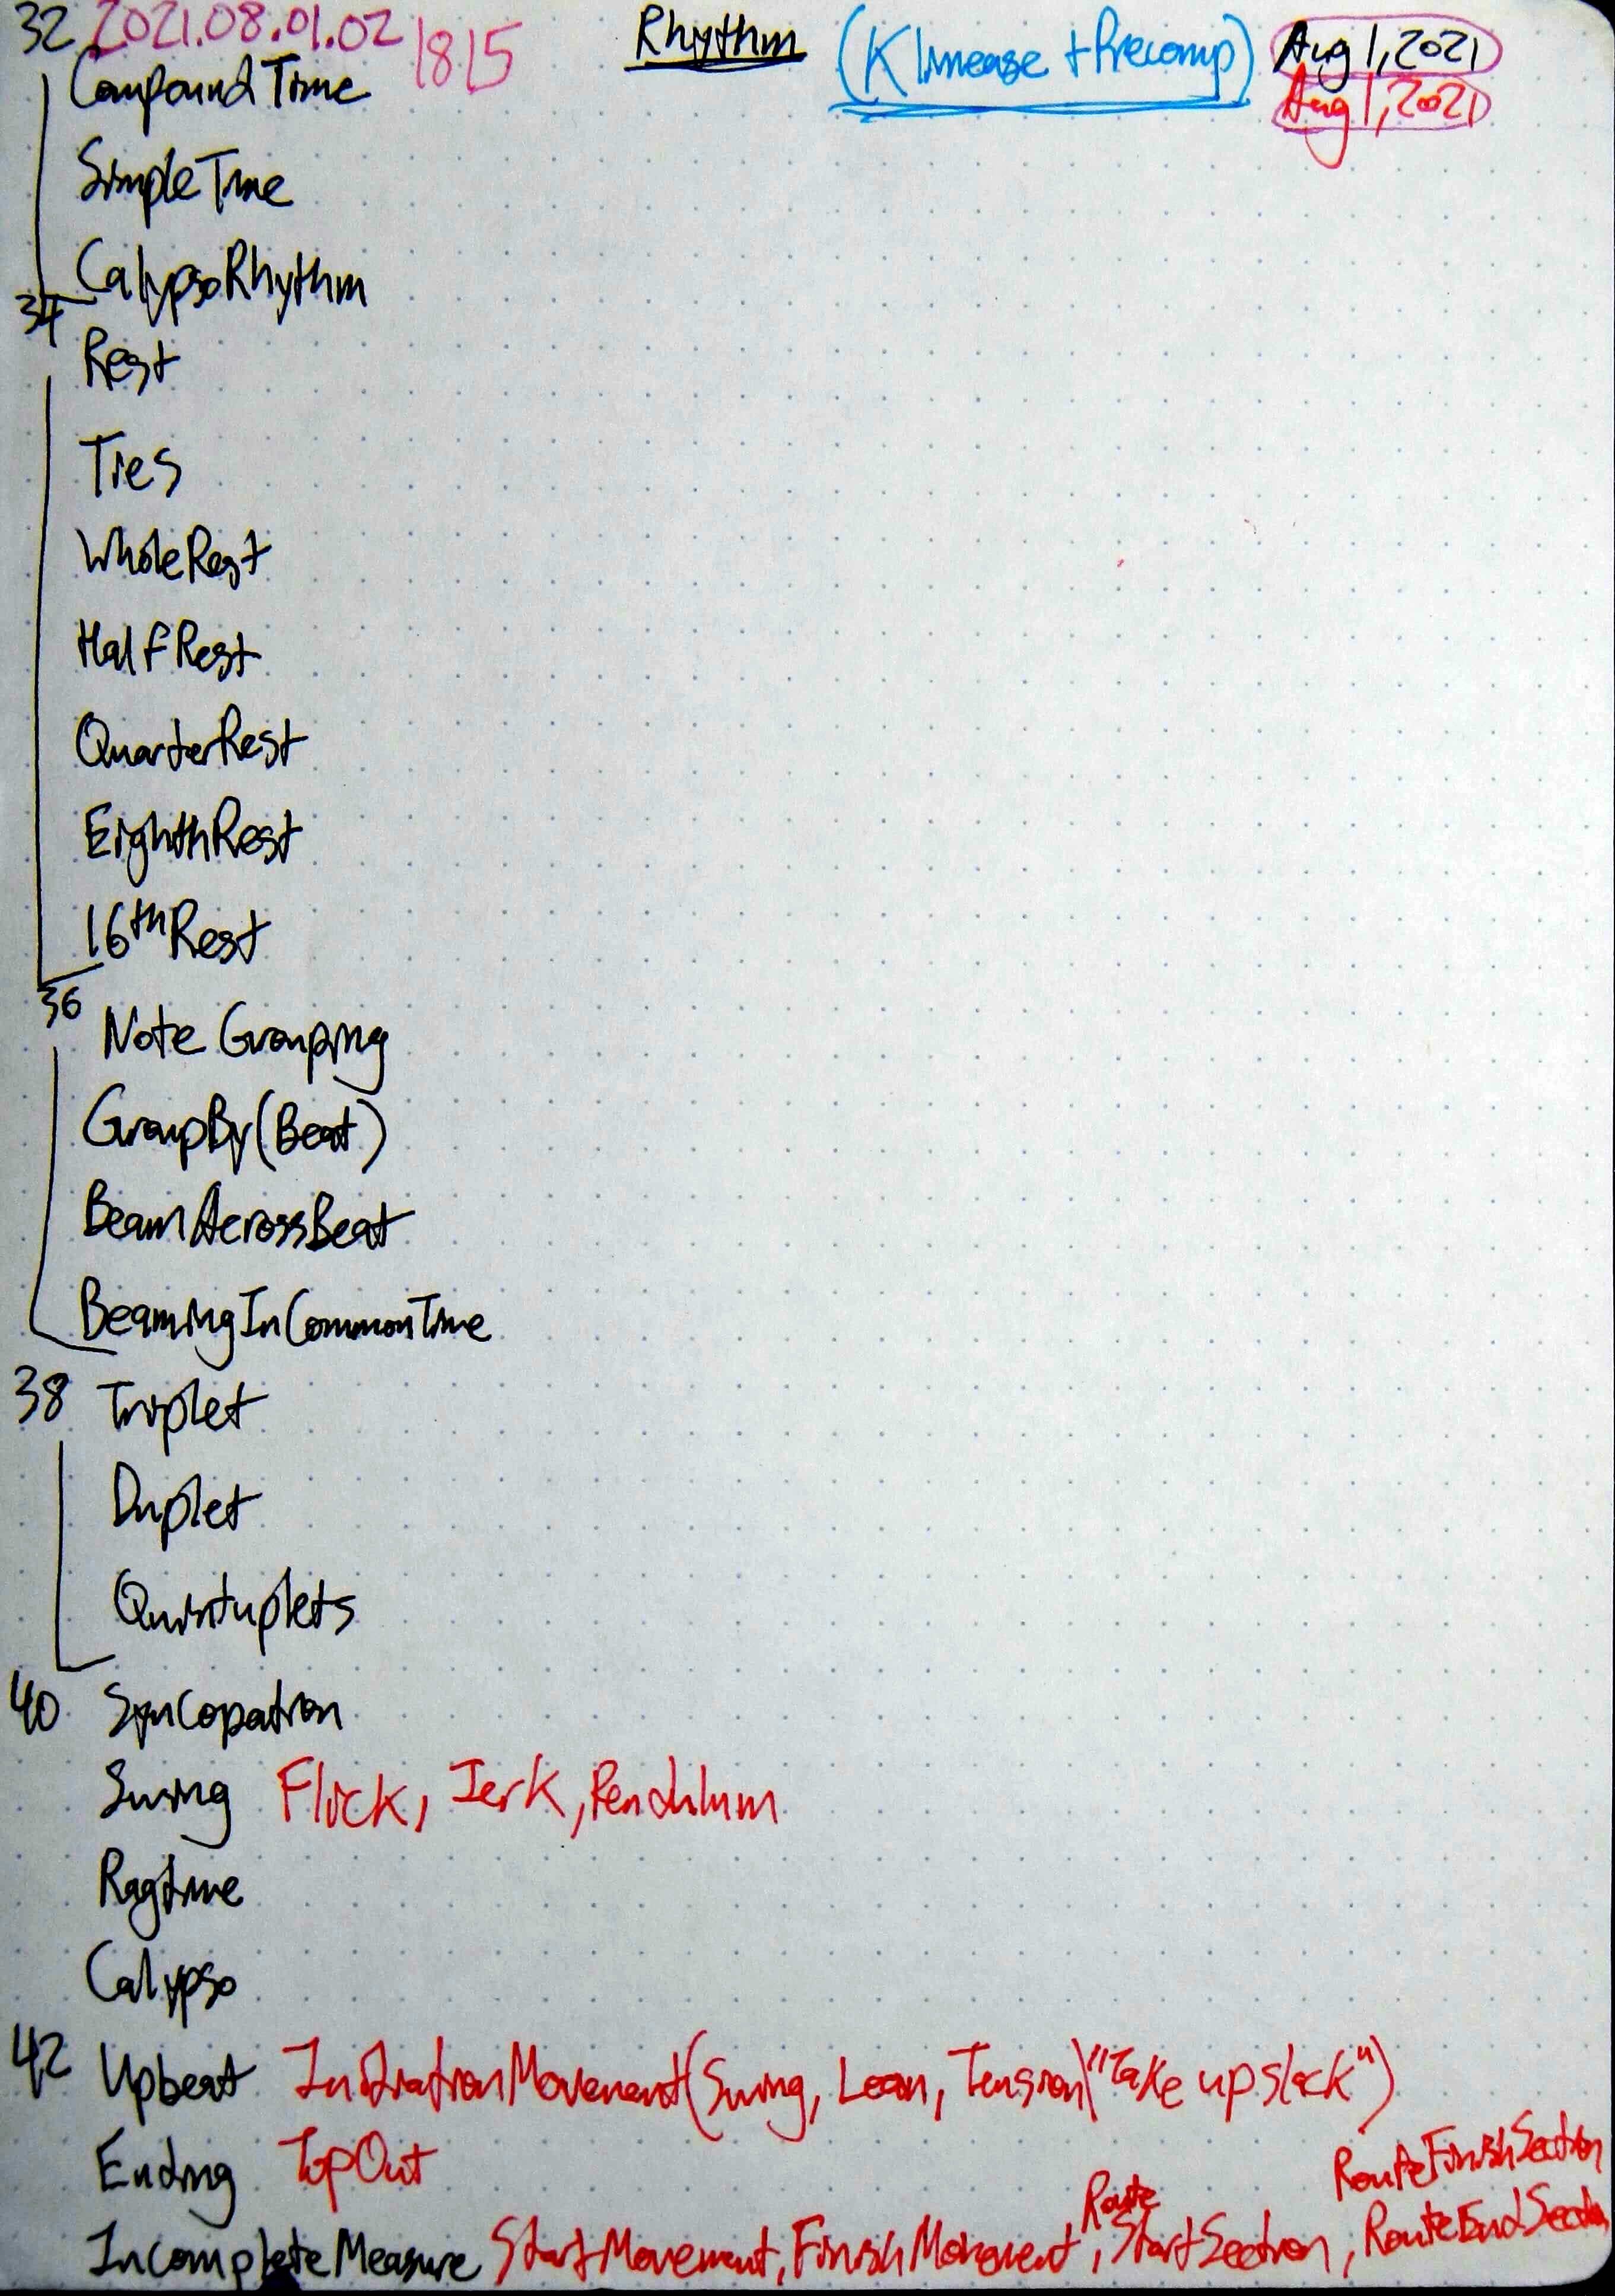 32 2021.08.01.02 1815 Rhythm (Klimease + Precomp) Aug 1, 2021
Aug 1, 2021
CompoundTime
SimpleTime
CalypsoRhythm
34
Rest
Ties
WholeRest
HalfRest
QuarterRest
EighthRest
16thRest
36
Note Grouping
GroupBy(Beat)
BeamAcrossBeat
BeamingInCommonTime
38 Triplet
Duplet
Quintuplets
40 Syncopation
Swing Flick, Jerk, Pendulum
Ragtime
Calypso
42 Upbeat InitiationMovement(Swing, Lean, Tension|"Take up slack")
Ending TopOut
RouteFinishSection
IncompleteMeasure StartMovement, FinishMovement, RouteStartSection, RouteEndSection